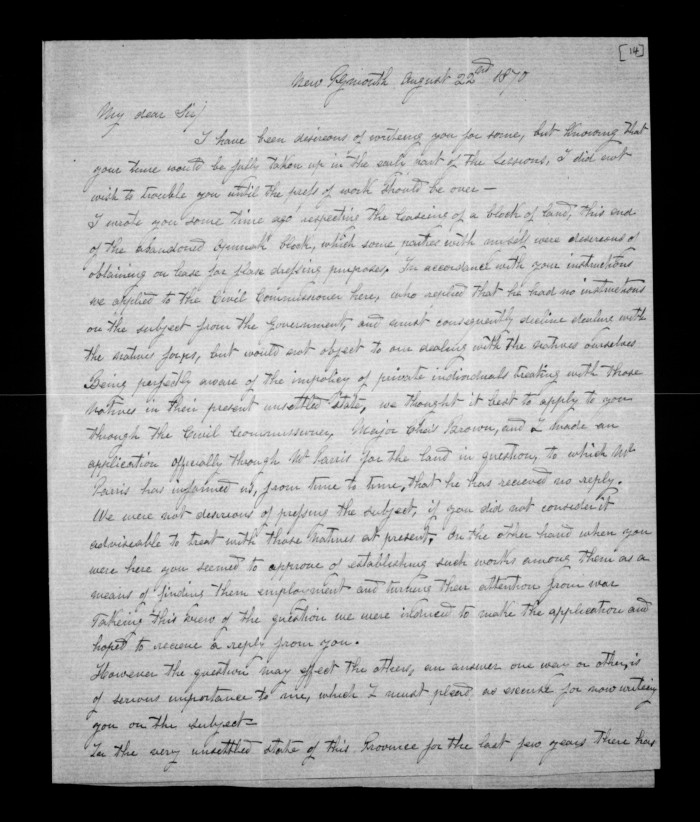 [14]
New Plymouth August 22nd 1870
My dear Sir/
I have been desireous of writeing you for some, but knowing that
your time would be fully taken up in the early part of the Sessions, I did not
wish to trouble you until the press of work should be once —
I wrote you some time ago respecting the leaseing of a block of land, this end
of the abandoned block, which some parties with myself were desireous of
obtaining on lease for flax dressing purposes. In accordance with your instructions
we applied to the Civil Commissioner here, who replied that he had no instructions
on the subject from the Government, and must consequently decline dealing with
the natives for us, but would not object to our dealing with the natives ourselves
Being perfectly aware of the impolicy of private individuals treating with those
Natives in their present unsettled state, we thought it best to apply to you
through the Civil Commissioner. Major Chas Brown, and I made an
application officially through Mr Parris for the land in question, to which Mr
Parris has informed us, from time to time, that he has recieved no reply.
We were not desireous of pressing the subject, if you did not consider it
adviseable to treat with those Natives at present, on the other hand when you
were here you seemed to approve of establishing such works among them as a
means of finding them employment and turning their attention from war
Takeing this view of the question we were induced to make the application and
hoped to receive a reply from you.
However the question may effect the others, an answer one way or other, is
of serious importance to me, which I must plead as excuse for now writing
you on the subject —
In the very unsettled state of this Province for the last few years there has